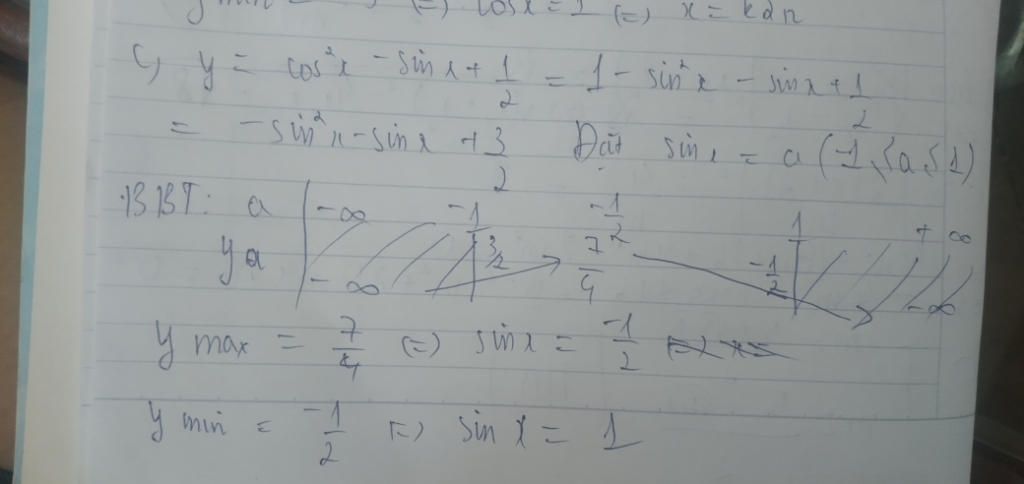 y (=) cosx = 1 (=) x = k2π
c, y = cos²x - sinx + 1/2 = 1 - sin²x - sinx + 1/2
= -sin²x - sinx + 3/2 Đặt sinx = a (-1 ≤ a ≤ 1)
BBT: a -∞ -1 -1/2 1 +∞
ya -∞ 3/2 7/4 -1/2 -∞
y max = 7/4 (=) sinx = -1/2
y min = -1/2 (=) sin x = 1